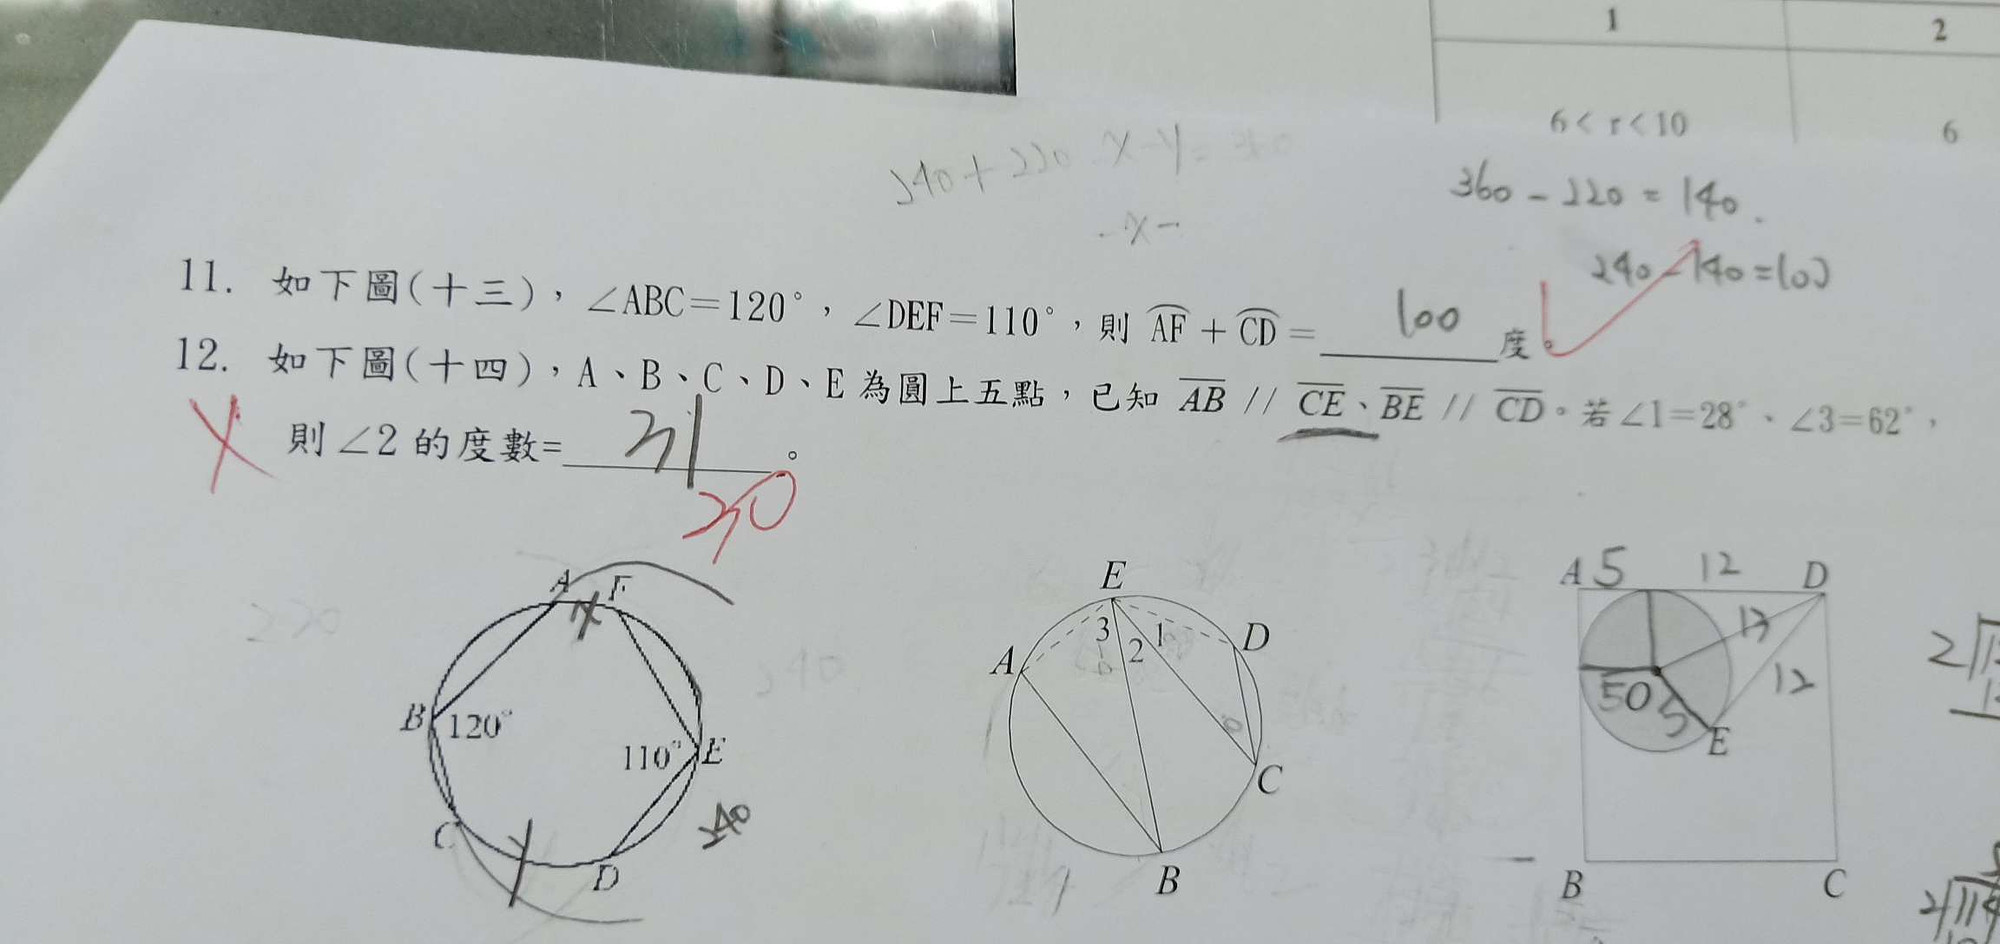 1 2
6 < r < 10 6
240 + 220 - x - y = 340
- x -
360 - 220 = 140.
240 - 140 = 100
11. 如下圖(十三)，∠ABC=120°，∠DEF=110°，則 AF + CD = 100 度。
12. 如下圖(十四)，A、B、C、D、E為圓上五點，已知 AB // CE、BE // CD。若∠1=28°、∠3=62°，
則∠2的度數= 31 。
30
A F
B 120°
110° E
C
D
240
220
240
E
3 2 1
A D
C
B
A 5 12 D
13
12
50 5
E
B C